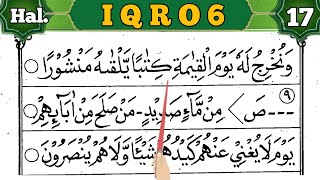 Hal. IQRO6 17
وَنُخْرِجُ لَهُ يَوْمَ الْقِيٰمَةِ كِتٰبًا يَّلْقٰىهُ مَنْشُوْرًا ○
٩
--- ص > مِنْ مَّآءٍ صَدِيْدٍ - مَنْ صَلَحَ مِنْ اٰبَآئِهِمْ
يَوْمَ لَا يُغْنِيْ عَنْهُمْ كَيْدُهُمْ شَيْئًا وَّلَا هُمْ يُنْصَرُوْنَ ○